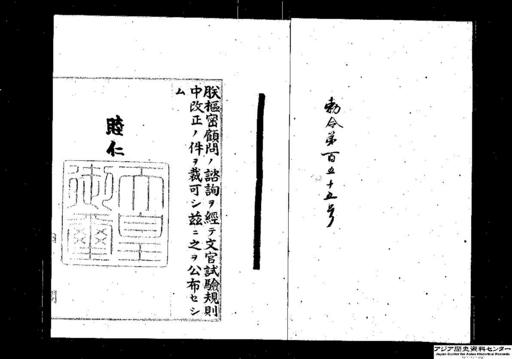 勅令第百五十五号
朕樞密顧問ノ諮詢ヲ經テ文官試驗規則
中改正ノ件ヲ裁可シ茲ニ之ヲ公布セシ
ム
睦仁
天皇御璽
アジア歴史資料センター
Japan Center for Asian Historical Records